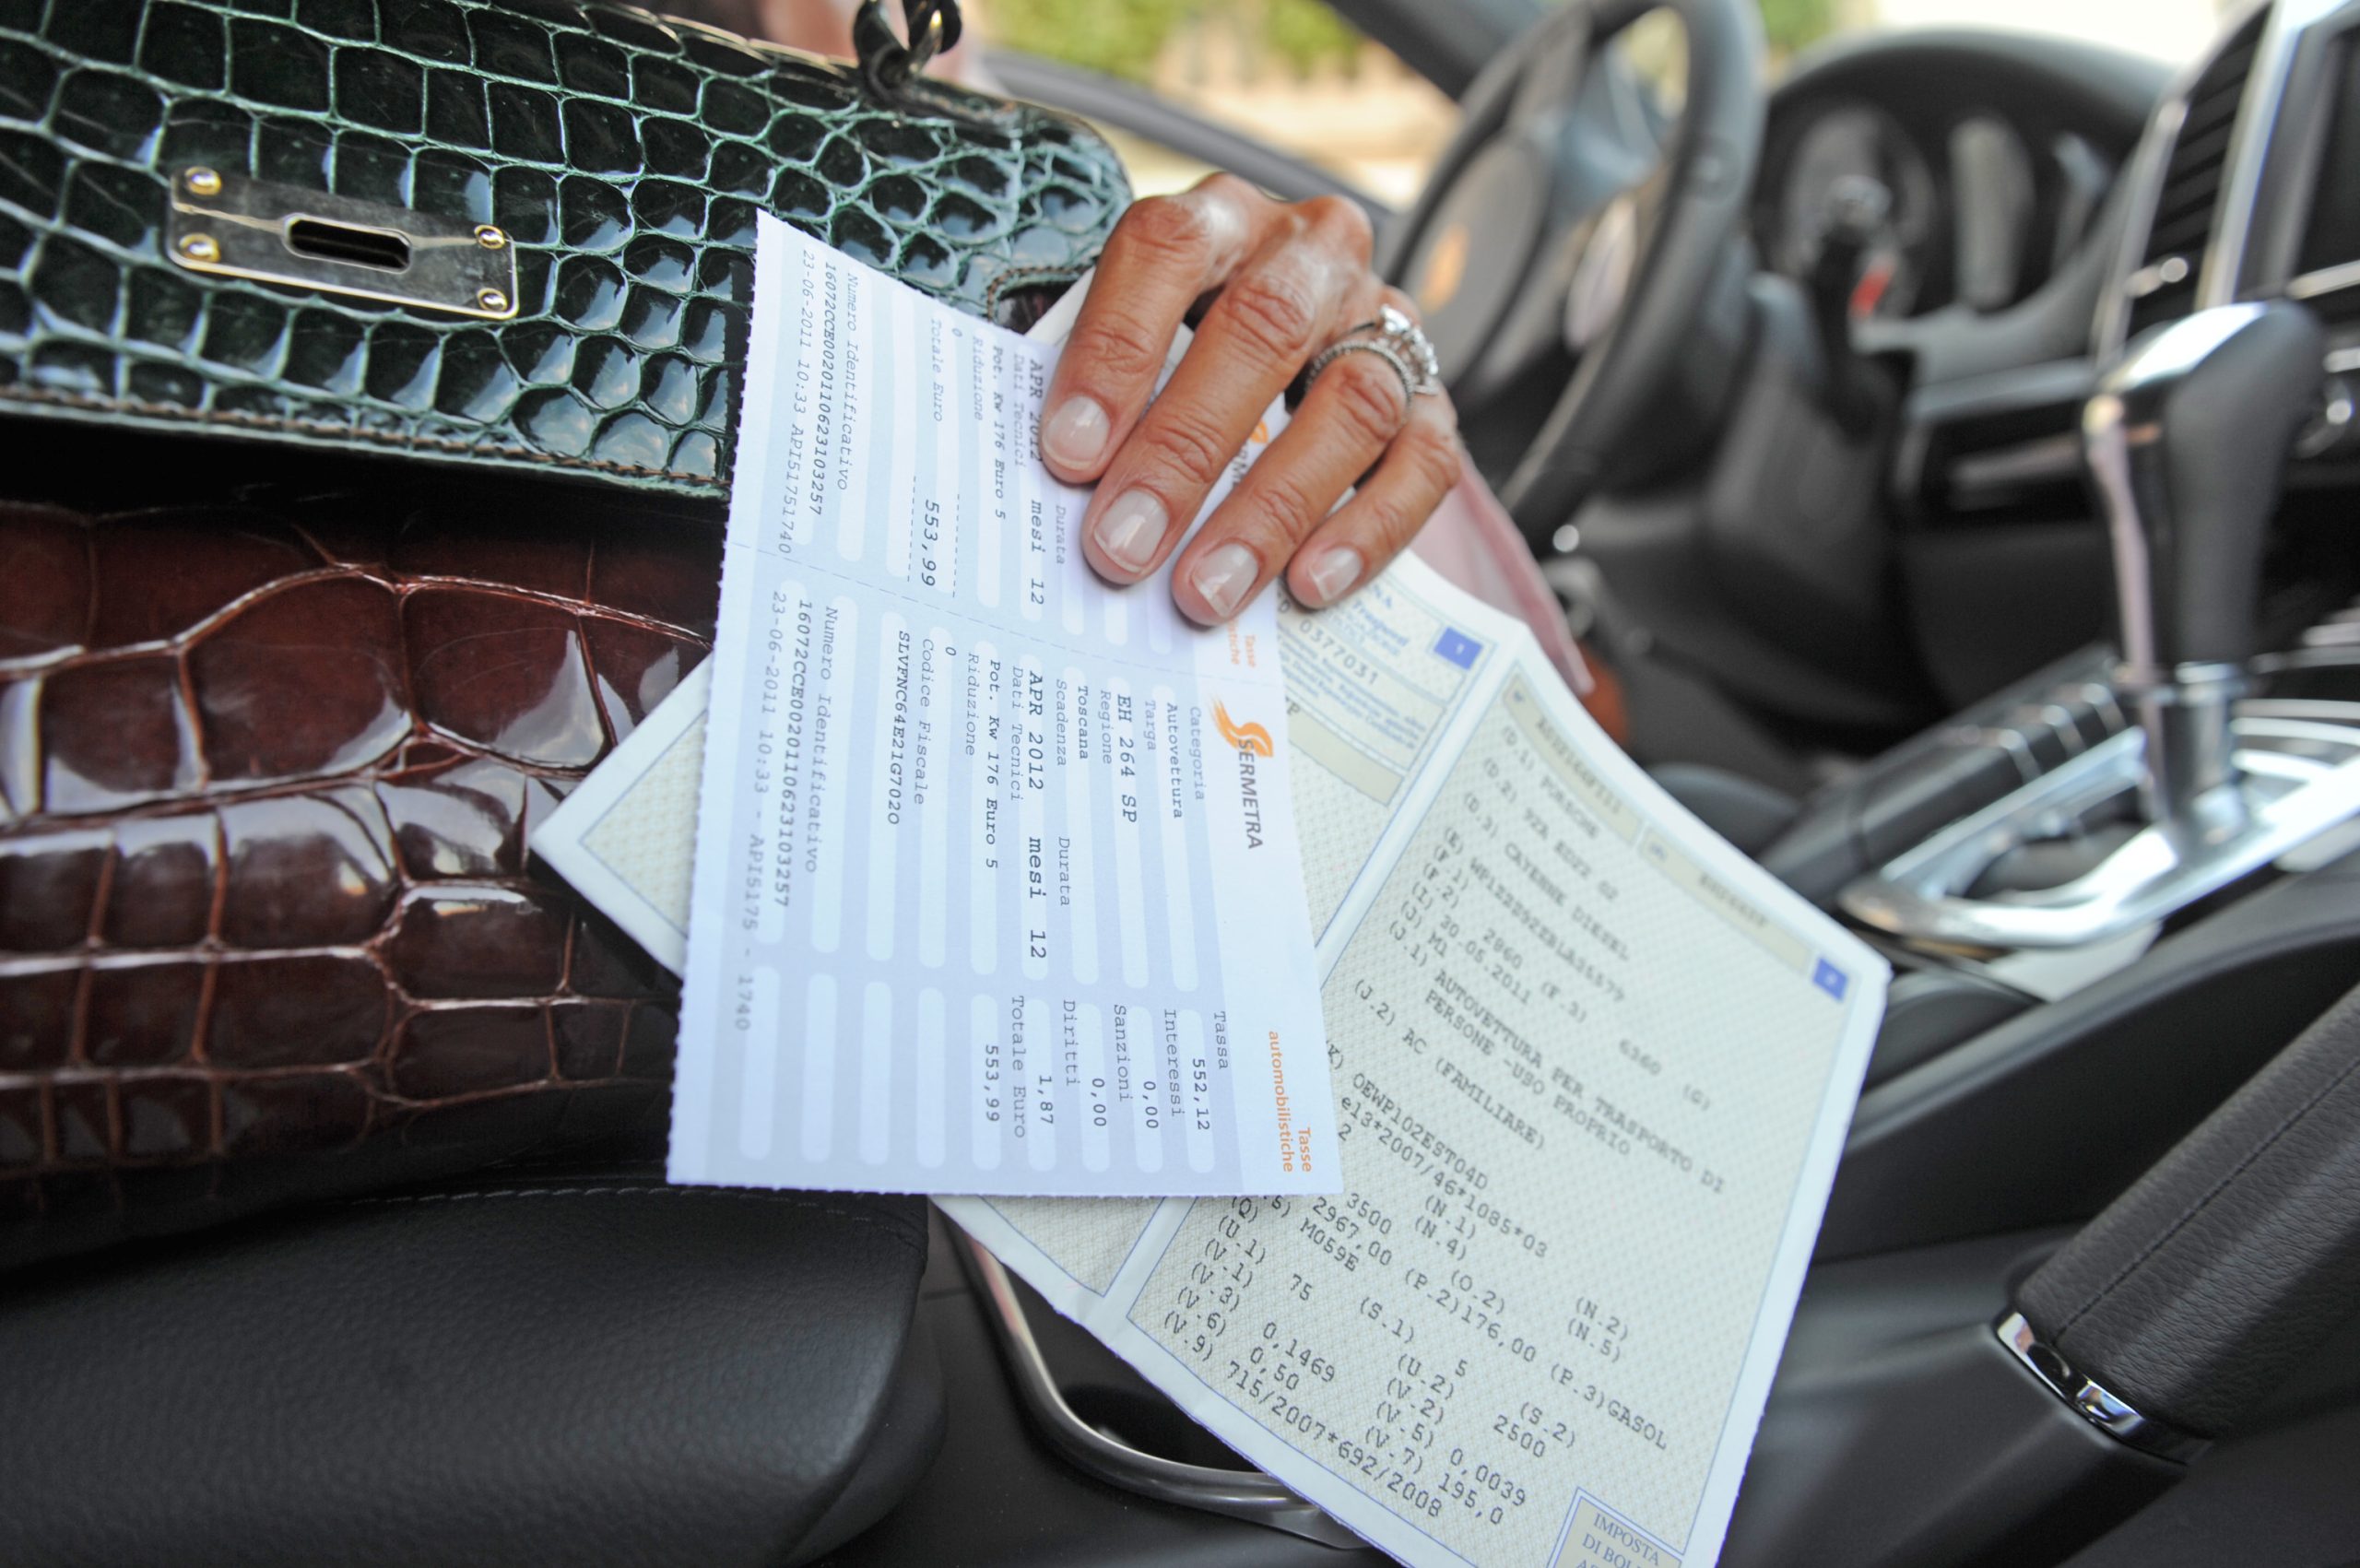 Numero Identificativo
16072CCE0020110623103257
23-06-2011 10:33 API51751740
APR 2012 mesi 12
Durata
Dati Tecnici
Pot. Kw 176 Euro 5
Riduzione
0
Totale Euro
553,99
SERMETRA
Tasse
automobilistiche
Categoria
Autovettura
Targa
EH 264 SP
Regione
Toscana
Scadenza Durata
APR 2012 mesi 12
Dati Tecnici
Pot. Kw 176 Euro 5
Riduzione
0
Codice Fiscale
SLVFNC64E21G702O
Numero Identificativo
16072CCE0020110623103257
23-06-2011 10:33 - API5175 - 1740
Tassa
552,12
Interessi
0,00
Sanzioni
0,00
Diritti
1,87
Totale Euro
553,99
0377031
(D.1) PORSCHE
(D.2) 92A
(D.3) CAYENNE DIESEL
(E)
(F.1) 2860 (F.3) 6360 (G)
(F.2)
(I) 30.05.2011
(J) M1
(J.1) AUTOVETTURA PER TRASPORTO DI
PERSONE -USO PROPRIO
(J.2) AC (FAMILIARE)
0EWP102EST04D
e13*2007/46*1085*03
2 (N.1) (N.2)
3500 (N.4) (N.5)
2967,00 (O.2)
M059E (P.2)176,00 (P.3)GASOL
(Q)
75 (S.1) 5 (S.2)
(U.1) (U.2) 2500
(V.1) (V.2)
(V.3) 0,1469 (V.5) 0,0039
(V.6) 0,50 (V.7) 195,0
(V.9) 715/2007*692/2008
IMPOSTA